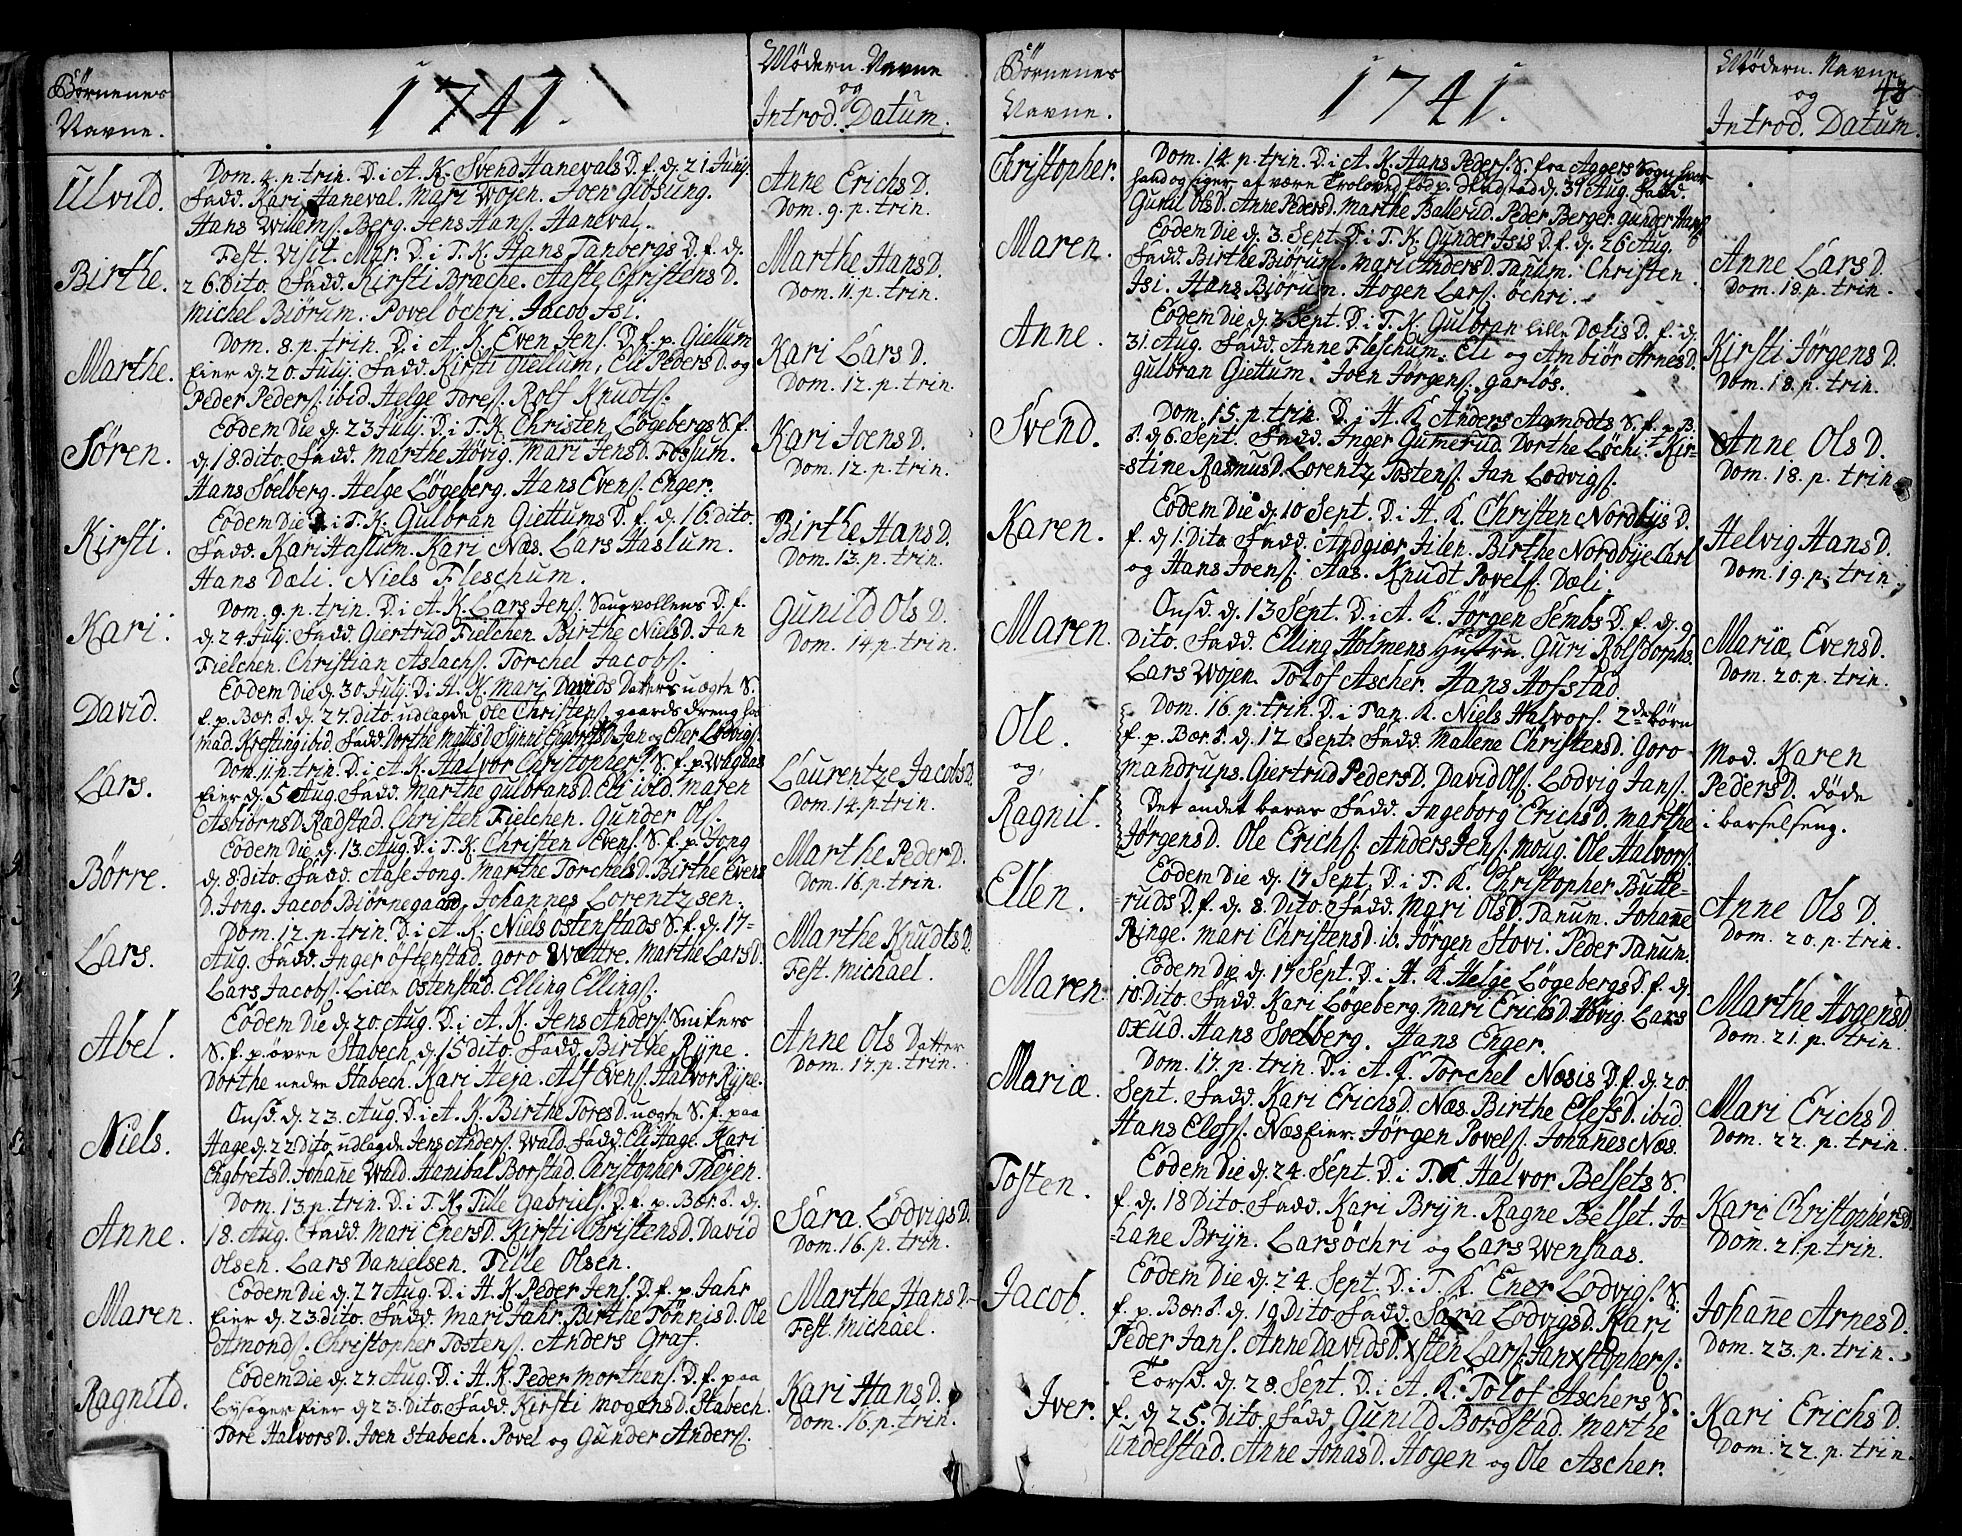 Börnenes
Navne.
1741.
Mödern. Navne
og
Introd. Datum.
Ulvild.
Dom. 4. p. trin. D. i A. K. Svend Hanevals D. f. d. 21 Junij.
Fadd. Kari Haneval. Mari Wojen. Joen Giosung.
Hans Willems. Berg. Jens Hans. Haneval.
Anne Erichs D.
Dom. 9. p. trin.
Birthe.
Fest. Visit. Mar. D. i T. K. Hans Tanbergs D. f. d.
26. Dito. Fadd. Kirsti Brache. Aaste Christens D.
Michel Biörum. Povel öchri. Jacob Isi.
Marthe Hans D.
Dom. 11. p. trin.
Marthe.
Dom. 8. p. trin. D. i A. K. Even Jens. D. f. p. Giettum
eier d. 20. Julij. Fadd. Kirsti Giellum, Eli Peders D. og
Peder Peders. ibid. Helge Tores. Rolf Knudts.
Kari Lars D.
Dom. 12. p. trin.
Sören.
Eodem Die d. 23 Julij. D. i T. K. Christen Lögebergs S. f.
d. 18. dito. Fadd. Marthe Hövig. Mari Jens D. Fossum.
Hans Soelberg. Helge Lögeberg. Hans Evens. Enger.
Kari Joens D.
Dom. 12. p. trin.
Kirsti.
Eodem Die D. i T. K. Gulbran Giettums D. f. d. 16. dito.
Fadd. Kari Haslum. Kari Næs. Lars Haslum.
Hans Dæli. Niels Fleschum.
Birthe Hans D.
Dom. 13. p. trin.
Kari.
Dom. 9. p. trin. D. i A. K. Lars Jens. Saugvollens D. f.
d. 24 Julij. Fadd. Giertrud Fielchen. Birthe Niels D. Jan
Fielchen. Christian Aslachs. Torchel Jacobs.
Gunild Ols D.
Dom. 14. p. trin.
David.
Eodem Die d. 30 Julij. D. i H. K. Mari Davids Datters uægte S.
f. p. Bær. d. 27. dito. udlagde Ole Christens. gaards dreng hos
Mad. Krefting ibid. Fadd. Dorthe Matis D. Synni Engebrets D. Jan og Ener Lodvigs.
Lars.
Dom. 11. p. trin. D. i A. K. Halvor Christophers. S. f. p. Wagaas
eier d. 5 Aug. Fadd. Marthe gulbrans D. Eli ibid. Maren
Asbiörns D. Radstad. Christen Fielchen. Gunder Ols.
Laurentze Jacobs D.
Dom. 14. p. trin.
Börre.
Eodem Die d. 13. Aug. D. i T. K. Christen Evens. S. f. p. Jong
d. 8. dito. Fadd. Aase Jong. Marthe Torchels D. Birthe Evens
D. Jong. Jacob Biörnegaard. Johannes Lorentzsen.
Marthe Peder D.
Dom. 16. p. trin.
Lars.
Dom. 12. p. trin. D. i A. K. Niels Östenstads S. f. d. 17
Aug. Fadd. Inger östenstad. goro Wettre. Marthe Lars D.
Lars Jacobs. Lille Ostenstad. Elling Ellings.
Marthe Knudts D.
Fest. Michael.
Abel.
Eodem Die d. 20. Aug. D. i A. K. Jens Anders. Snikers
S. f. p. övre Stabech. d. 15 dito. Fadd. Birthe Rijne.
Dorthe nedre Stabech. Kari Heja. Alf Evens. Halvor Rijne.
Anne Ols Datter
Dom. 17. p. trin.
Niels.
Onsd. d. 23. Aug. D. i A. K. Birthe Tores D. uægte S. f. paa
Hage d. 22 Dito. udlagde Jens Anders. Wald. Fadd. Eli Hage. Kari
Engbrets D. Johanne Wald. Hanibal Borstad. Christopher Thejen.
Anne.
Dom. 13. p. trin. D. i T. K. Tille Gabriels. D. f. p. Bær. d.
18. Aug. Fadd. Mari Eners D. Kirsti Christens D. David
Olsen. Lars Danielsen. Tille Olsen.
Sara. Lodvigs D.
Dom. 16. p. trin.
Maren.
Eodem Die d. 27 Aug. D. i H. K. Peder Jens. D. f. p. Jahr
eier d. 23. dito. Fadd. Mari Jahr. Birthe Tönnis D. Ole
Amonds. Christopher Tostens. Anders Graf.
Marthe Hans D.
Fest. Michael.
Ragnild.
Eodem Die d. 27 Aug. D. i H. K. Peder Morthens. D. f. paa
Lysager eier d. 23. Dito. Fadd. Kirsti Mogens D. Stabech.
Tore Halvors D. Joen Stabech. Povel og Gunder Anders.
Kari Hans D.
Dom. 16. p. trin.
Börnenes
Navne.
1741.
Mödern. Navne
48
og
Introd. Datum.
Christopher.
Dom. 14. p. trin. D. i A. K. Hans Peders. S. fra Aggers Sogn hvor
hand og siger af være Troloved. föd p. Hadstad d. 31 Aug. Fadd.
Gunil Ols D. Anne Peders D. Marthe Ballerud. Peder Berger. gunder Hans.
Maren.
Eodem Die d. 3. Sept. D. i T. K. Gunder Isis D. f. d. 26 Aug.
Fadd. Birthe Biörum. Mari Anders D. Tanum. Christen
Isi. Hans Biörum. Hogen Lars. öchri.
Anne Lars D.
Dom. 18. p. trin.
Anne.
Eodem Die d. 3 Sept. D. i T. K. Gulbran lille Dælis D. f. d.
31. Aug. Fadd. Anne Fleschum. Eli og Ambiör Arnes D.
gulbran Giettum. Joen Jörgens. garlös.
Kirsti Jörgens D.
Dom. 18. p. trin.
Svend.
Dom. 15. p. trin. D. i H. K. Anders Aamodts S. f. p. B.
d. 6. Sept. Fadd. Inger Gumerud. Dorthe Löchi. Kir-
-stine Rasmus D. Lorentz Tostens. Jan Lodvigs.
Anne Ols D.
Dom. 18. p. trin.
Karen.
Eodem Die d. 10 Sept. D. i H. K. Christen Nordbijs D.
f. d. 1. Dito. Fadd. Andgiær Hilen. Birthe Nordbije. Carl
og Hans Joens. Aas. Knudt Povels. Dæli.
Helvig Hans D.
Dom. 19. p. trin.
Maren.
Onsd. d. 13 Sept. D. i A. K. Jörgen Sembs D. f. d. 9
Dito. Fadd. Elling Holmens Hustru. Guri Rolfsdorphs.
Lars Wojen. Tolof Ascher. Hans Hofstad.
Mariæ Evens D.
Dom. 20. p. trin.
Ole.
og
Ragnil.
Dom. 16. p. trin. D. i Tan. K. Niels Halvors. 2de börn
f. p. Bær. d. 12 Sept. Fadd. Malene Christens D. Goro
Mandrups. Giertrud Peders D. David Ols. Lodvig Jans.
Det andet barns Fadd. Ingeborg Erichs D. Marthe
Jörgens D. Ole Erichs. Anders Jens. Moug. Ole Halvors.
Mod. Karen
Peders D. döde
i barselseng.
Ellen.
Eodem Die d. 17 Sept. D. i T. K. Christopher Butte-
-ruds D. f. d. 8. Dito. Fadd. Mari Ols D. Tanum. Johane
Ringe. Mari Christens D. ib. Jörgen Stovi. Peder Tanum.
Anne Ols D.
Dom. 20. p. trin.
Maren.
Eodem Die d. 17 Sept. D. i H. K. Helge Lögebergs D. f. d.
10. Dito. Fadd. Kari Lögeberg. Mari Erichs D. Hövig. Lars
Oxud. Hans Soelberg. Hans Enger.
Marthe Hogens D.
Dom. 21. p. trin.
Mariæ.
Dom. 17. p. trin. D. i A. K. Torchel Næsis D. f. d. 20
Sept. Fadd. Kari Erichs D. Næs. Birthe Elefs D. ibid.
Hans Elefs. Næs eier. Jörgen Povels. Johanes Næs.
Mari Erichs D.
Dom. 22. p. trin.
Tosten.
Eodem Die d. 24. Sept. D. i T. K. Halvor Belsets S.
f. d. 18 Dito. Fadd. Kari Brijn. Ragne Belset. Jo-
-hane Brijn. Lars öchri og Lars Wensaas.
Kari Christophers D.
Dom. 21. p. trin.
Jacob.
Eodem Die d. 24. Sept. D. i T. K. Ener Lodvigs. S.
f. p. Bær. d. 19 Dito Fadd. Sara Lodvigs D. Kari
Peder Jans. Anne Davids D. Xsten Lars. Jan Xstophers.
Johane Arnes D.
Dom. 23. p. trin.
Iver.
Torsd. d. 28. Sept. D. i A. K. Tolof Aschers S.
f. d. 25. Dito. Fadd. Gunild Bordstad. Marthe
Undelstad. Anne Jonas D. Hogen og Ole Ascher.
Kari Erichs D.
Dom. 22. p. trin.